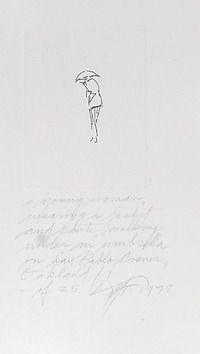 a young woman,
wearing a jacket
and pants, walking
under an umbrella
on San Pablo Avenue,
Oakland
- of 25 1978